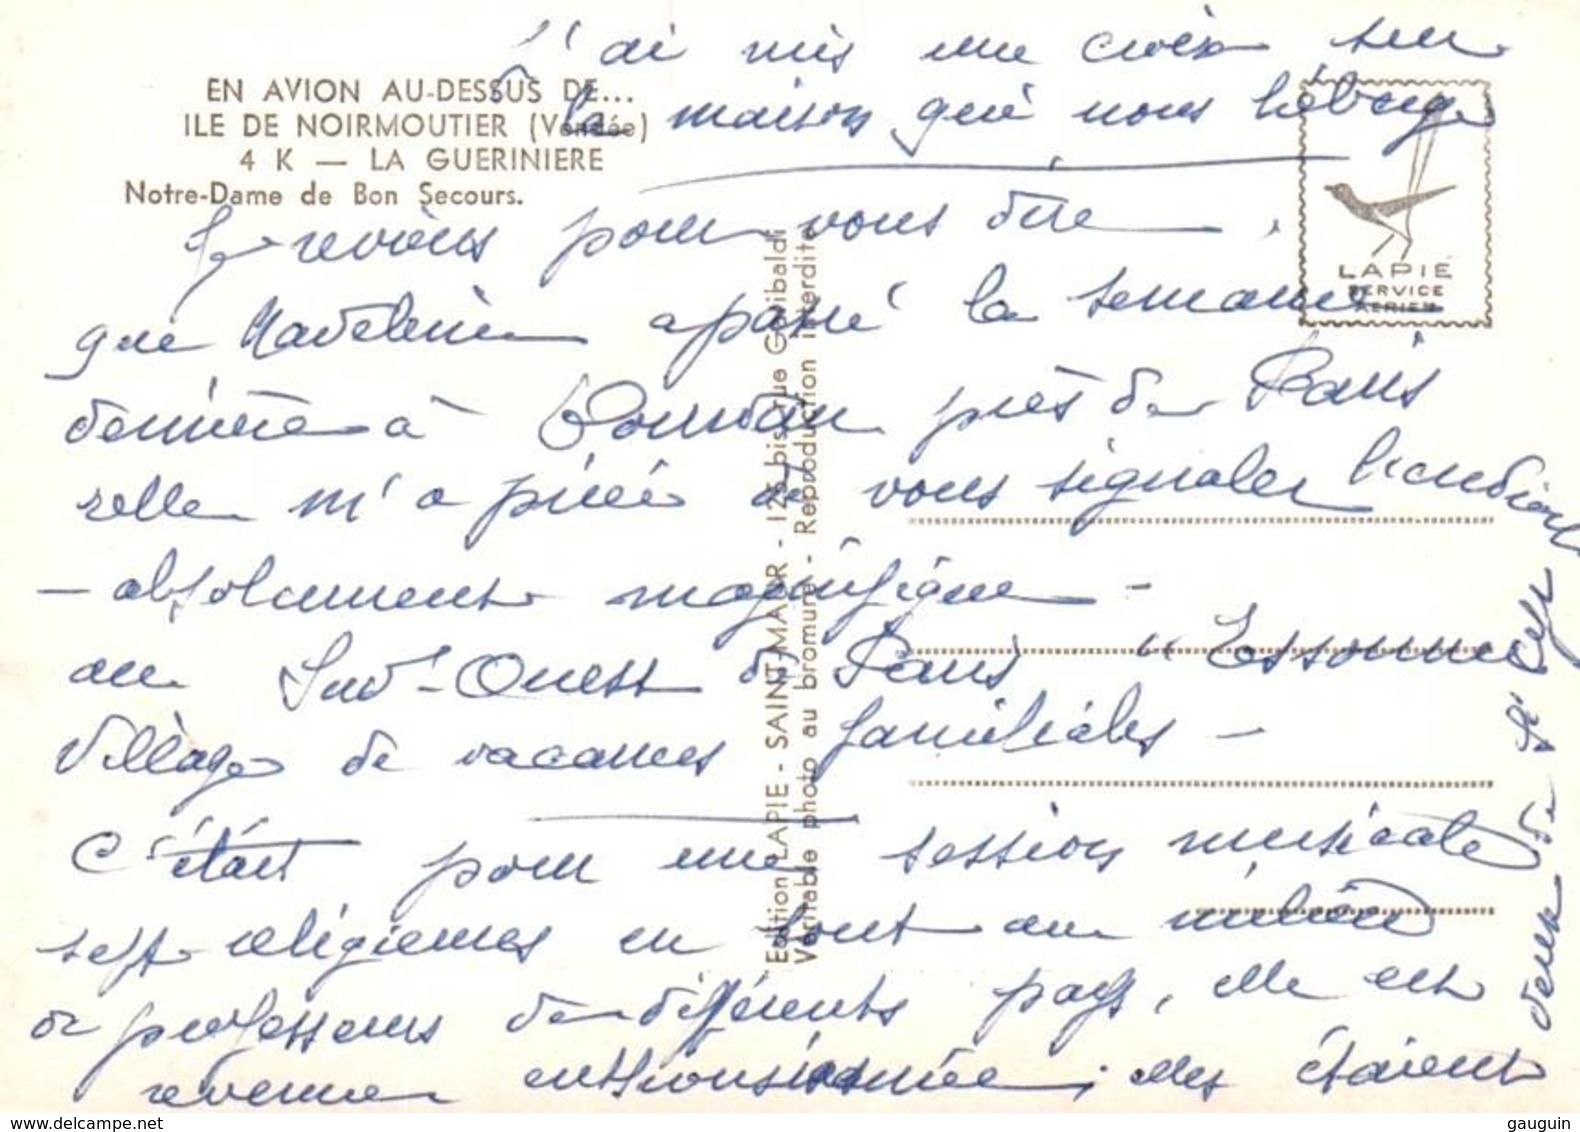 J'ai mis une croix sur
la maison qui nous héberge
EN AVION AU-DESSUS DE...
ILE DE NOIRMOUTIER (Vendée)
4 K — LA GUERINIERE
Notre-Dame de Bon Secours.
LAPIE
SERVICE
AERIEN
Je reviens pour vous dire
que Madeleine a passé la semaine
dernière à Dourdan près de Paris
elle m'a priée de vous signaler l'endroit
— absolument magnifique —
au Sud-Ouest de Paris "Essonne
Village de vacances familiales —
C'était pour une session musicale
sept religieuses en tout au milieu
de professeurs de différents pays, elle est
revenue enthousiasmée ; elles étaient
deux de St
Edition LAPIE - SAINT-MAUR - 125 bis, rue Garibaldi
Véritable photo au bromure - Reproduction interdite
www.delcampe.net
gauguin